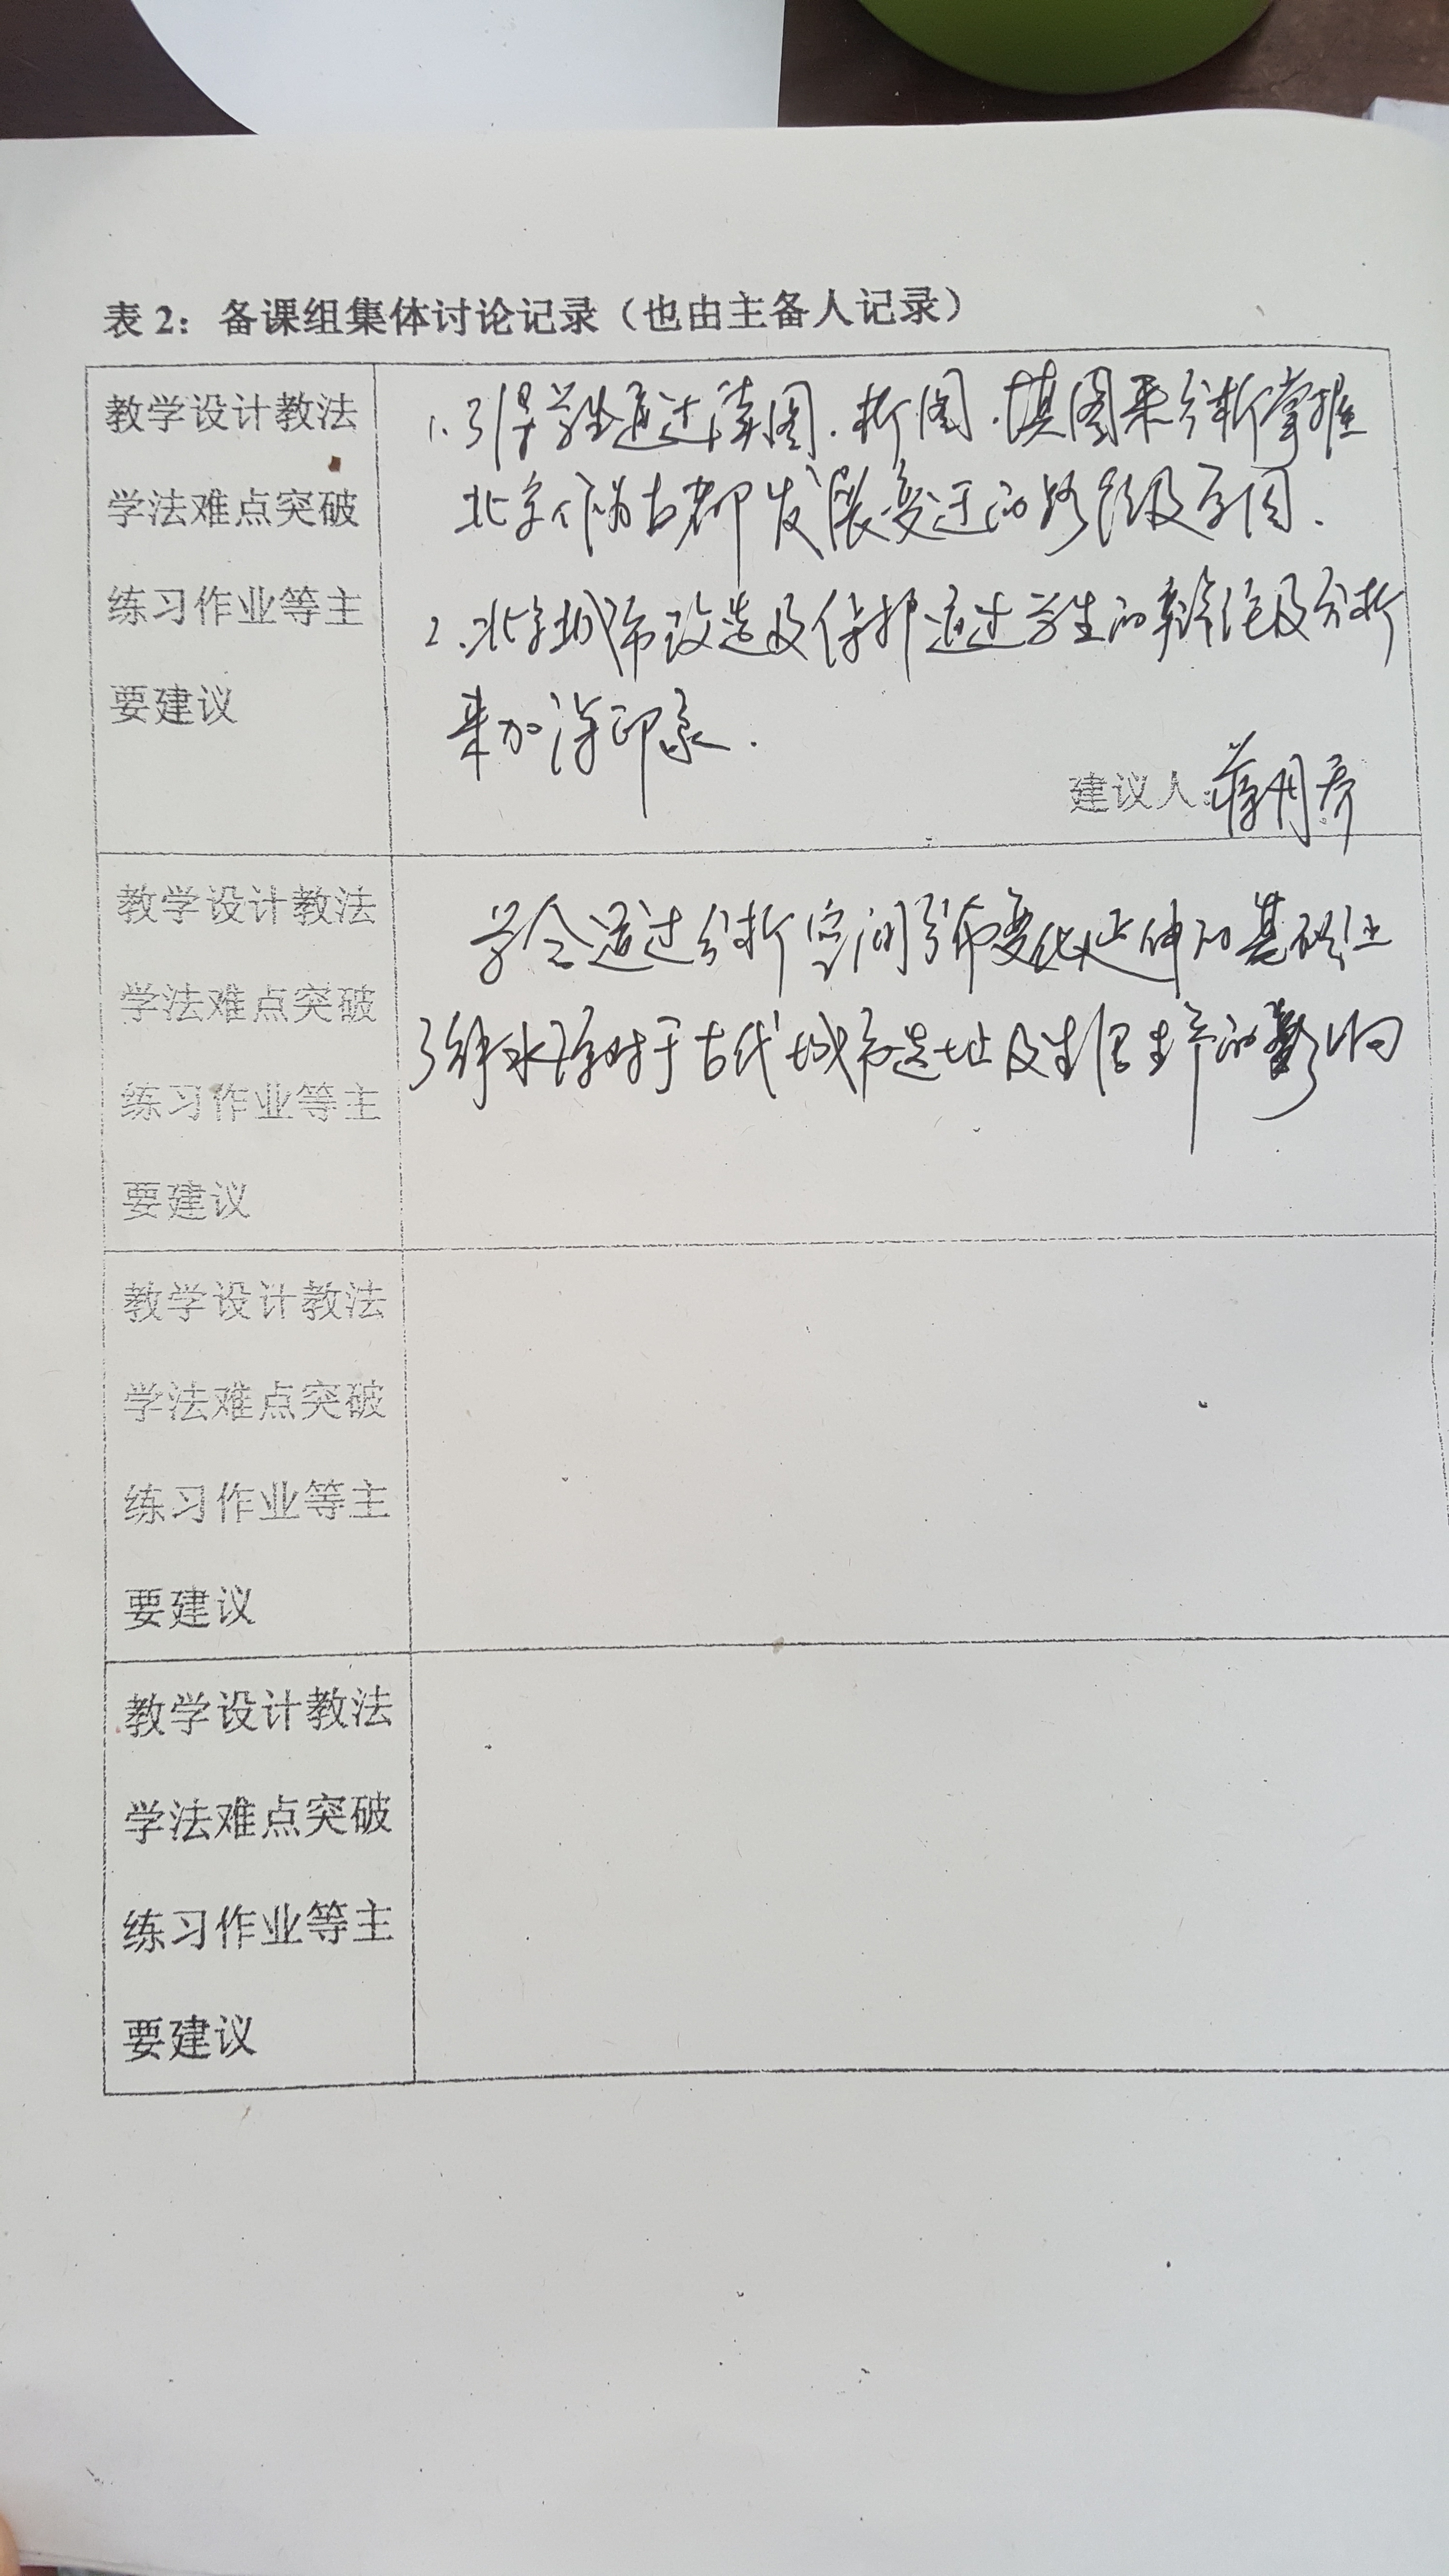 表 2：备课组集体讨论记录（也由主备人记录）
教学设计教法
学法难点突破
练习作业等主
要建议
1.引导学生通过读图.析图.填图来分析掌握
北京作为古都发展变迁的路径及原因.
2.北京城市改造及保护通过学生的辩论及分析
来加深印象.
建议人：蒋月
教学设计教法
学法难点突破
练习作业等主
要建议
学会通过分析空间分布变化延伸的基础上
了解水源对于古代城市选址及生活生产的影响
教学设计教法
学法难点突破
练习作业等主
要建议
教学设计教法
学法难点突破
练习作业等主
要建议